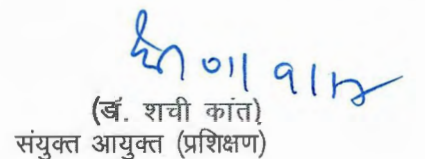 (डॉ. शची कांत)
संयुक्त आयुक्त (प्रशिक्षण)